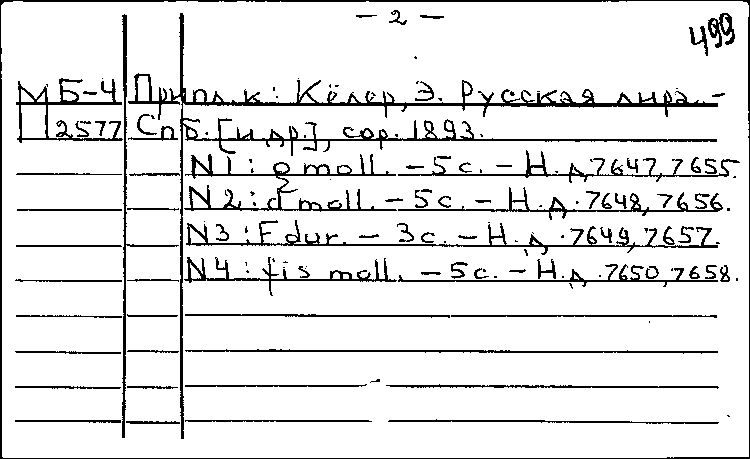 — 2 —
499
МБ-4 Припл. к: Кёлер, Э. Русская лира. –
П 2577 Спб. [и др.], cop. 1893.
N1: g moll. – 5 с. – Н. д. 7647, 7655.
N2: d moll. – 5 с. – Н. д. 7648, 7656.
N3: F dur. – 3 с. – Н. д. 7649, 7657.
N4: fis moll. – 5 с. – Н. д. 7650, 7658.